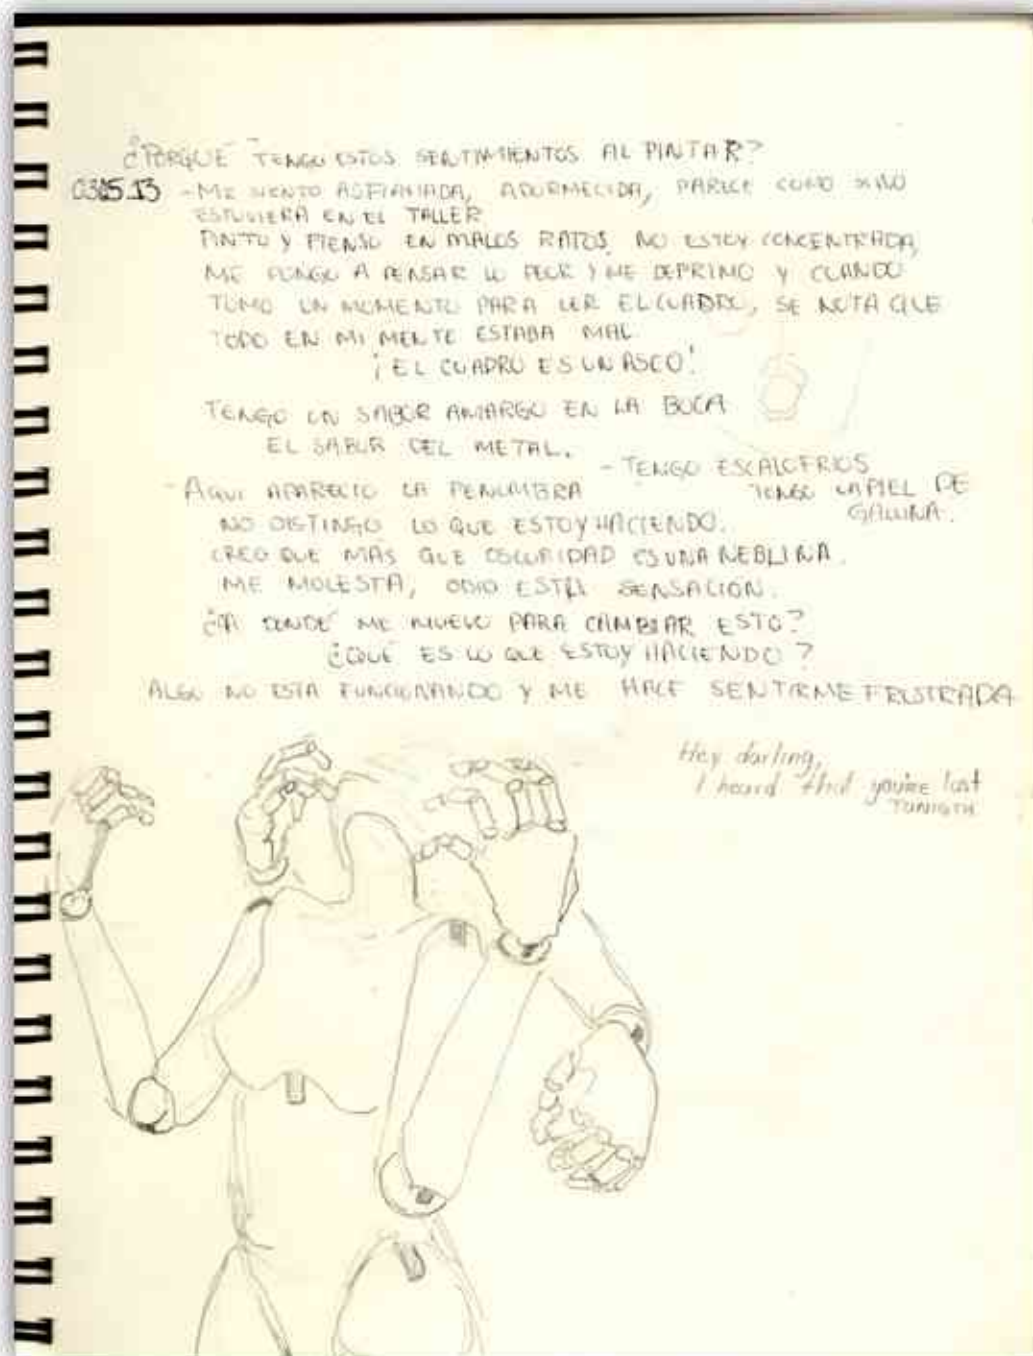 ¿PORQUE TENGO ESTOS SENTIMIENTOS AL PINTAR?
030513 - ME SIENTO ADORMECIDA, PARECE COMO SI NO
ESTUVIERA EN EL TALLER
PINTO Y PIENSO EN MALOS RATOS, NO ESTOY CONCENTRADA,
ME PONGO A PENSAR LO PEOR Y ME DEPRIMO Y CUANDO
TOMO UN MOMENTO PARA VER EL CUADRO, SE NOTA QUE
TODO EN MI MENTE ESTABA MAL
¡EL CUADRO ES UN ASCO!
TENGO UN SABOR AMARGO EN LA BOCA
EL SABOR DEL METAL.
- TENGO ESCALOFRIOS
TENGO LA PIEL DE
GALLINA.
- AQUI APARECIO LA PENUMBRA
NO DISTINGO LO QUE ESTOY HACIENDO.
CREO QUE MAS QUE OSCURIDAD ES UNA NEBLINA.
ME MOLESTA, ODIO ESTA SENSACIÓN.
¿A DONDE ME MUEVO PARA CAMBIAR ESTO?
¿QUÉ ES LO QUE ESTOY HACIENDO?
ALGO NO ESTA FUNCIONANDO Y ME HACE SENTIRME FRUSTRADA
Hey darling,
I heard that you're lost
TONIGTH